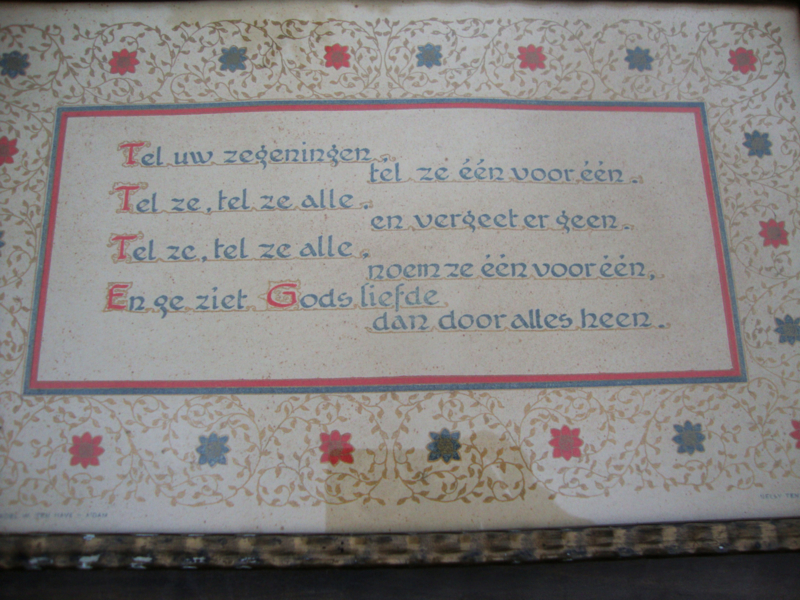 Tel uw zegeningen,
tel ze één voor één.
Tel ze, tel ze alle,
en vergeet er geen.
Tel ze, tel ze alle,
noem ze één voor één,
En ge ziet Gods liefde
dan door alles heen.